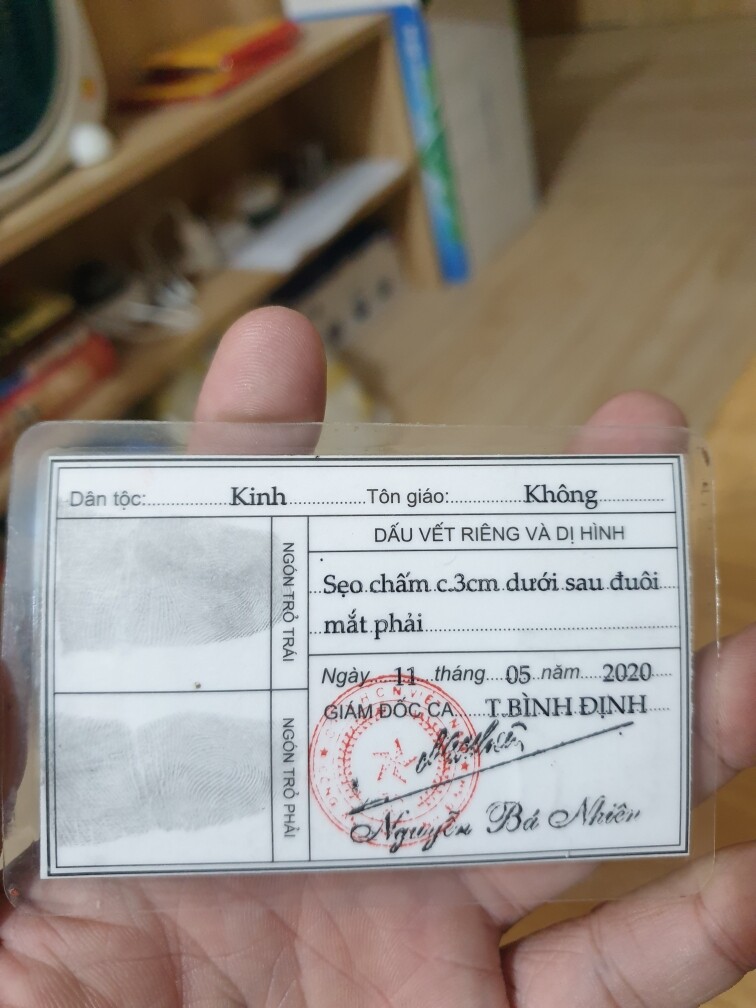 Dân tộc: Kinh Tôn giáo: Không
NGÓN TRỎ TRÁI
DẤU VẾT RIÊNG VÀ DỊ HÌNH
Sẹo chấm c.3cm dưới sau đuôi
mắt phải
Ngày 11 tháng 05 năm 2020
GIÁM ĐỐC CA T.BÌNH ĐỊNH
NGÓN TRỎ PHẢI
Nguyễn Bá Nhiên